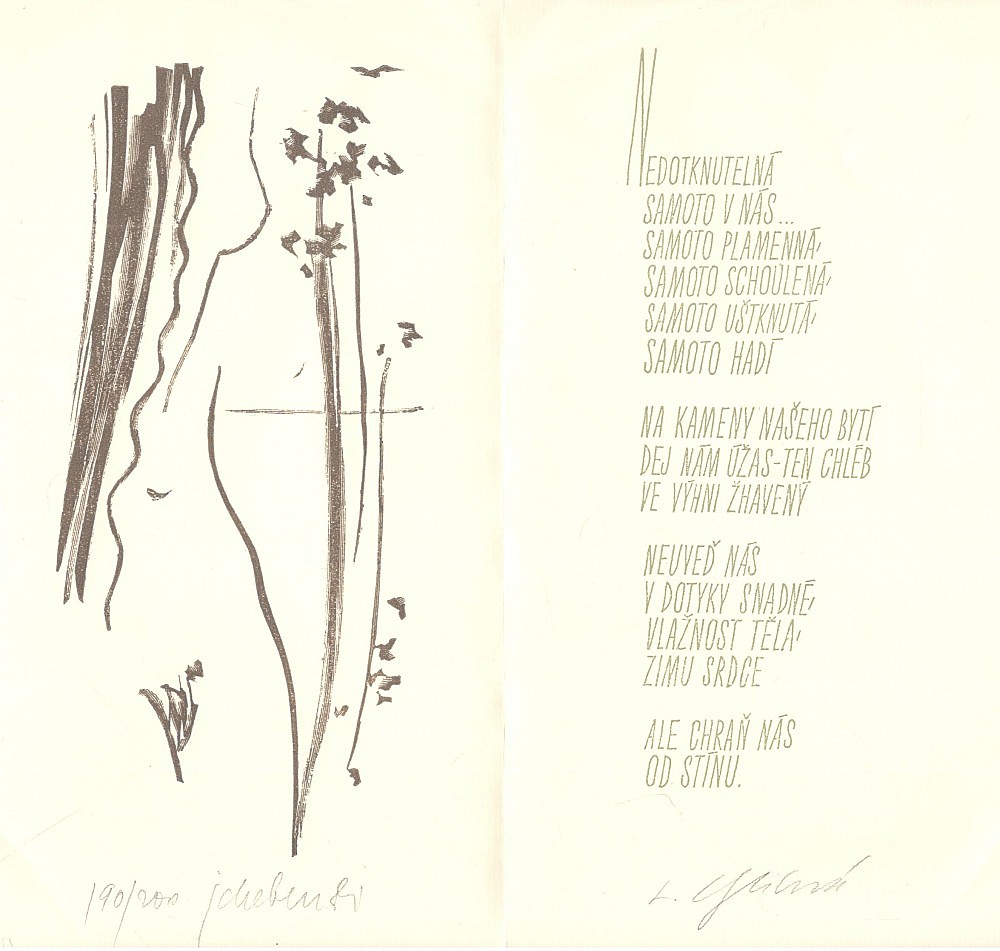 NEDOTKNUTELNÁ
SAMOTO V NÁS...
SAMOTO PLAMENNÁ,
SAMOTO SCHOULENÁ,
SAMOTO UŠTKNUTÁ,
SAMOTO HADÍ
NA KAMENY NAŠEHO BYTÍ
DEJ NÁM ÚŽAS-TEN CHLÉB
VE VÝHNI ŽHAVENÝ
NEUVEĎ NÁS
V DOTYKY SNADNÉ,
VLAŽNOST TĚLA,
ZIMU SRDCE
ALE CHRAŇ NÁS
OD STÍNU.
190/200
L.